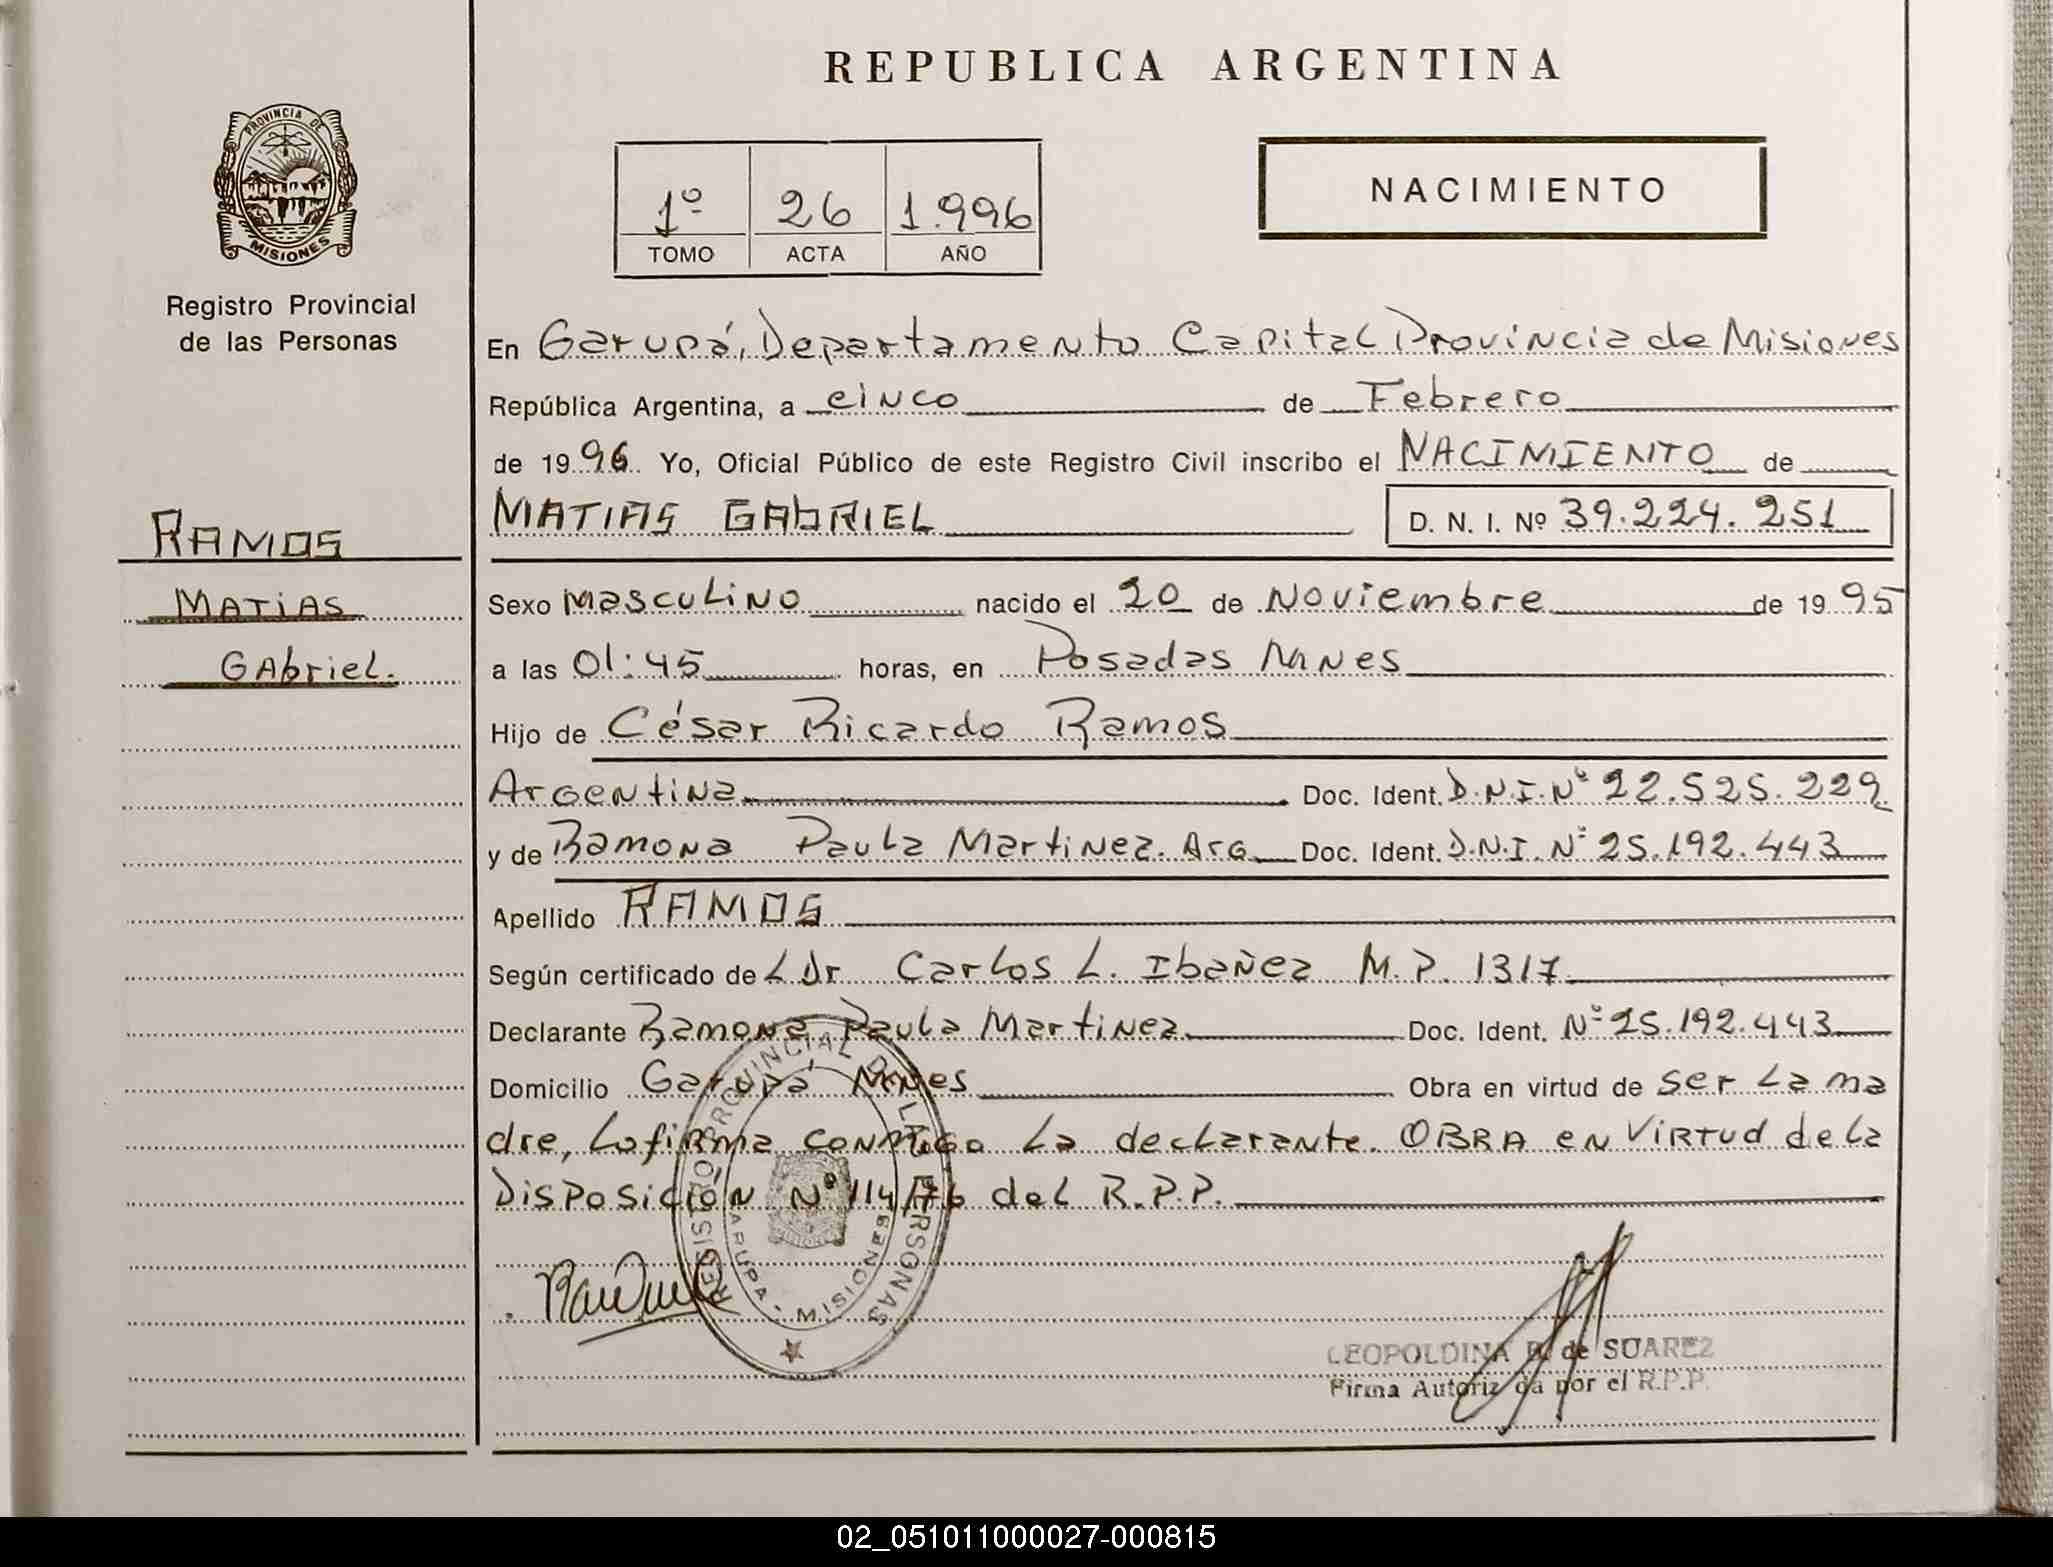 REPUBLICA ARGENTINA
PROVINCIA DE MISIONES
Registro Provincial
de las Personas
1º 26 1.996
TOMO ACTA AÑO
NACIMIENTO
En Garupá, Departamento Capital Provincia de Misiones
República Argentina, a cinco de Febrero
de 1996 Yo, Oficial Público de este Registro Civil inscribo el NACIMIENTO de
RAMOS
MATIAS
GAbriel.
MATIAS GAbRIEL D. N. I. Nº 39.224.251
Sexo masculino nacido el 20 de Noviembre de 1995
a las 01:45 horas, en Posadas Mnes
Hijo de César Ricardo Ramos
Argentina Doc. Ident. D.N.I. Nº 22.525.229
y de Ramona Paula Martinez. Arg. Doc. Ident. D.N.I. Nº 25.192.443
Apellido RAMOS
Según certificado de L Dr Carlos L. Ibañez M.P. 1317
Declarante Ramona Paula Martinez Doc. Ident. Nº 25.192.443
Domicilio Garupá Mnes Obra en virtud de ser La ma
dre, Lo firma conmigo La declarante. OBRA en VIRTUD de la
Disposición Nº 114/76 del R.P.P.
REGISTRO PROVINCIAL DE LAS PERSONAS
GARUPA - MISIONES
LEOPOLDINA R. de SUAREZ
Firma Autorizada por el R.P.P.
02_051011000027-000815